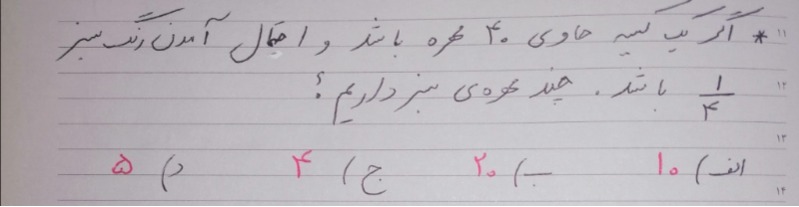 * اگر یک کیسه حاوی ۴۰ مهره باشد و احتمال آمدن رنگ سبز
۱/۴ باشد. چند مهره‌ی سبز داریم؟
الف) ۱۰ ب) ۲۰ ج) ۴ د) ۵
۱۱
۱۲
۱۳
۱۴